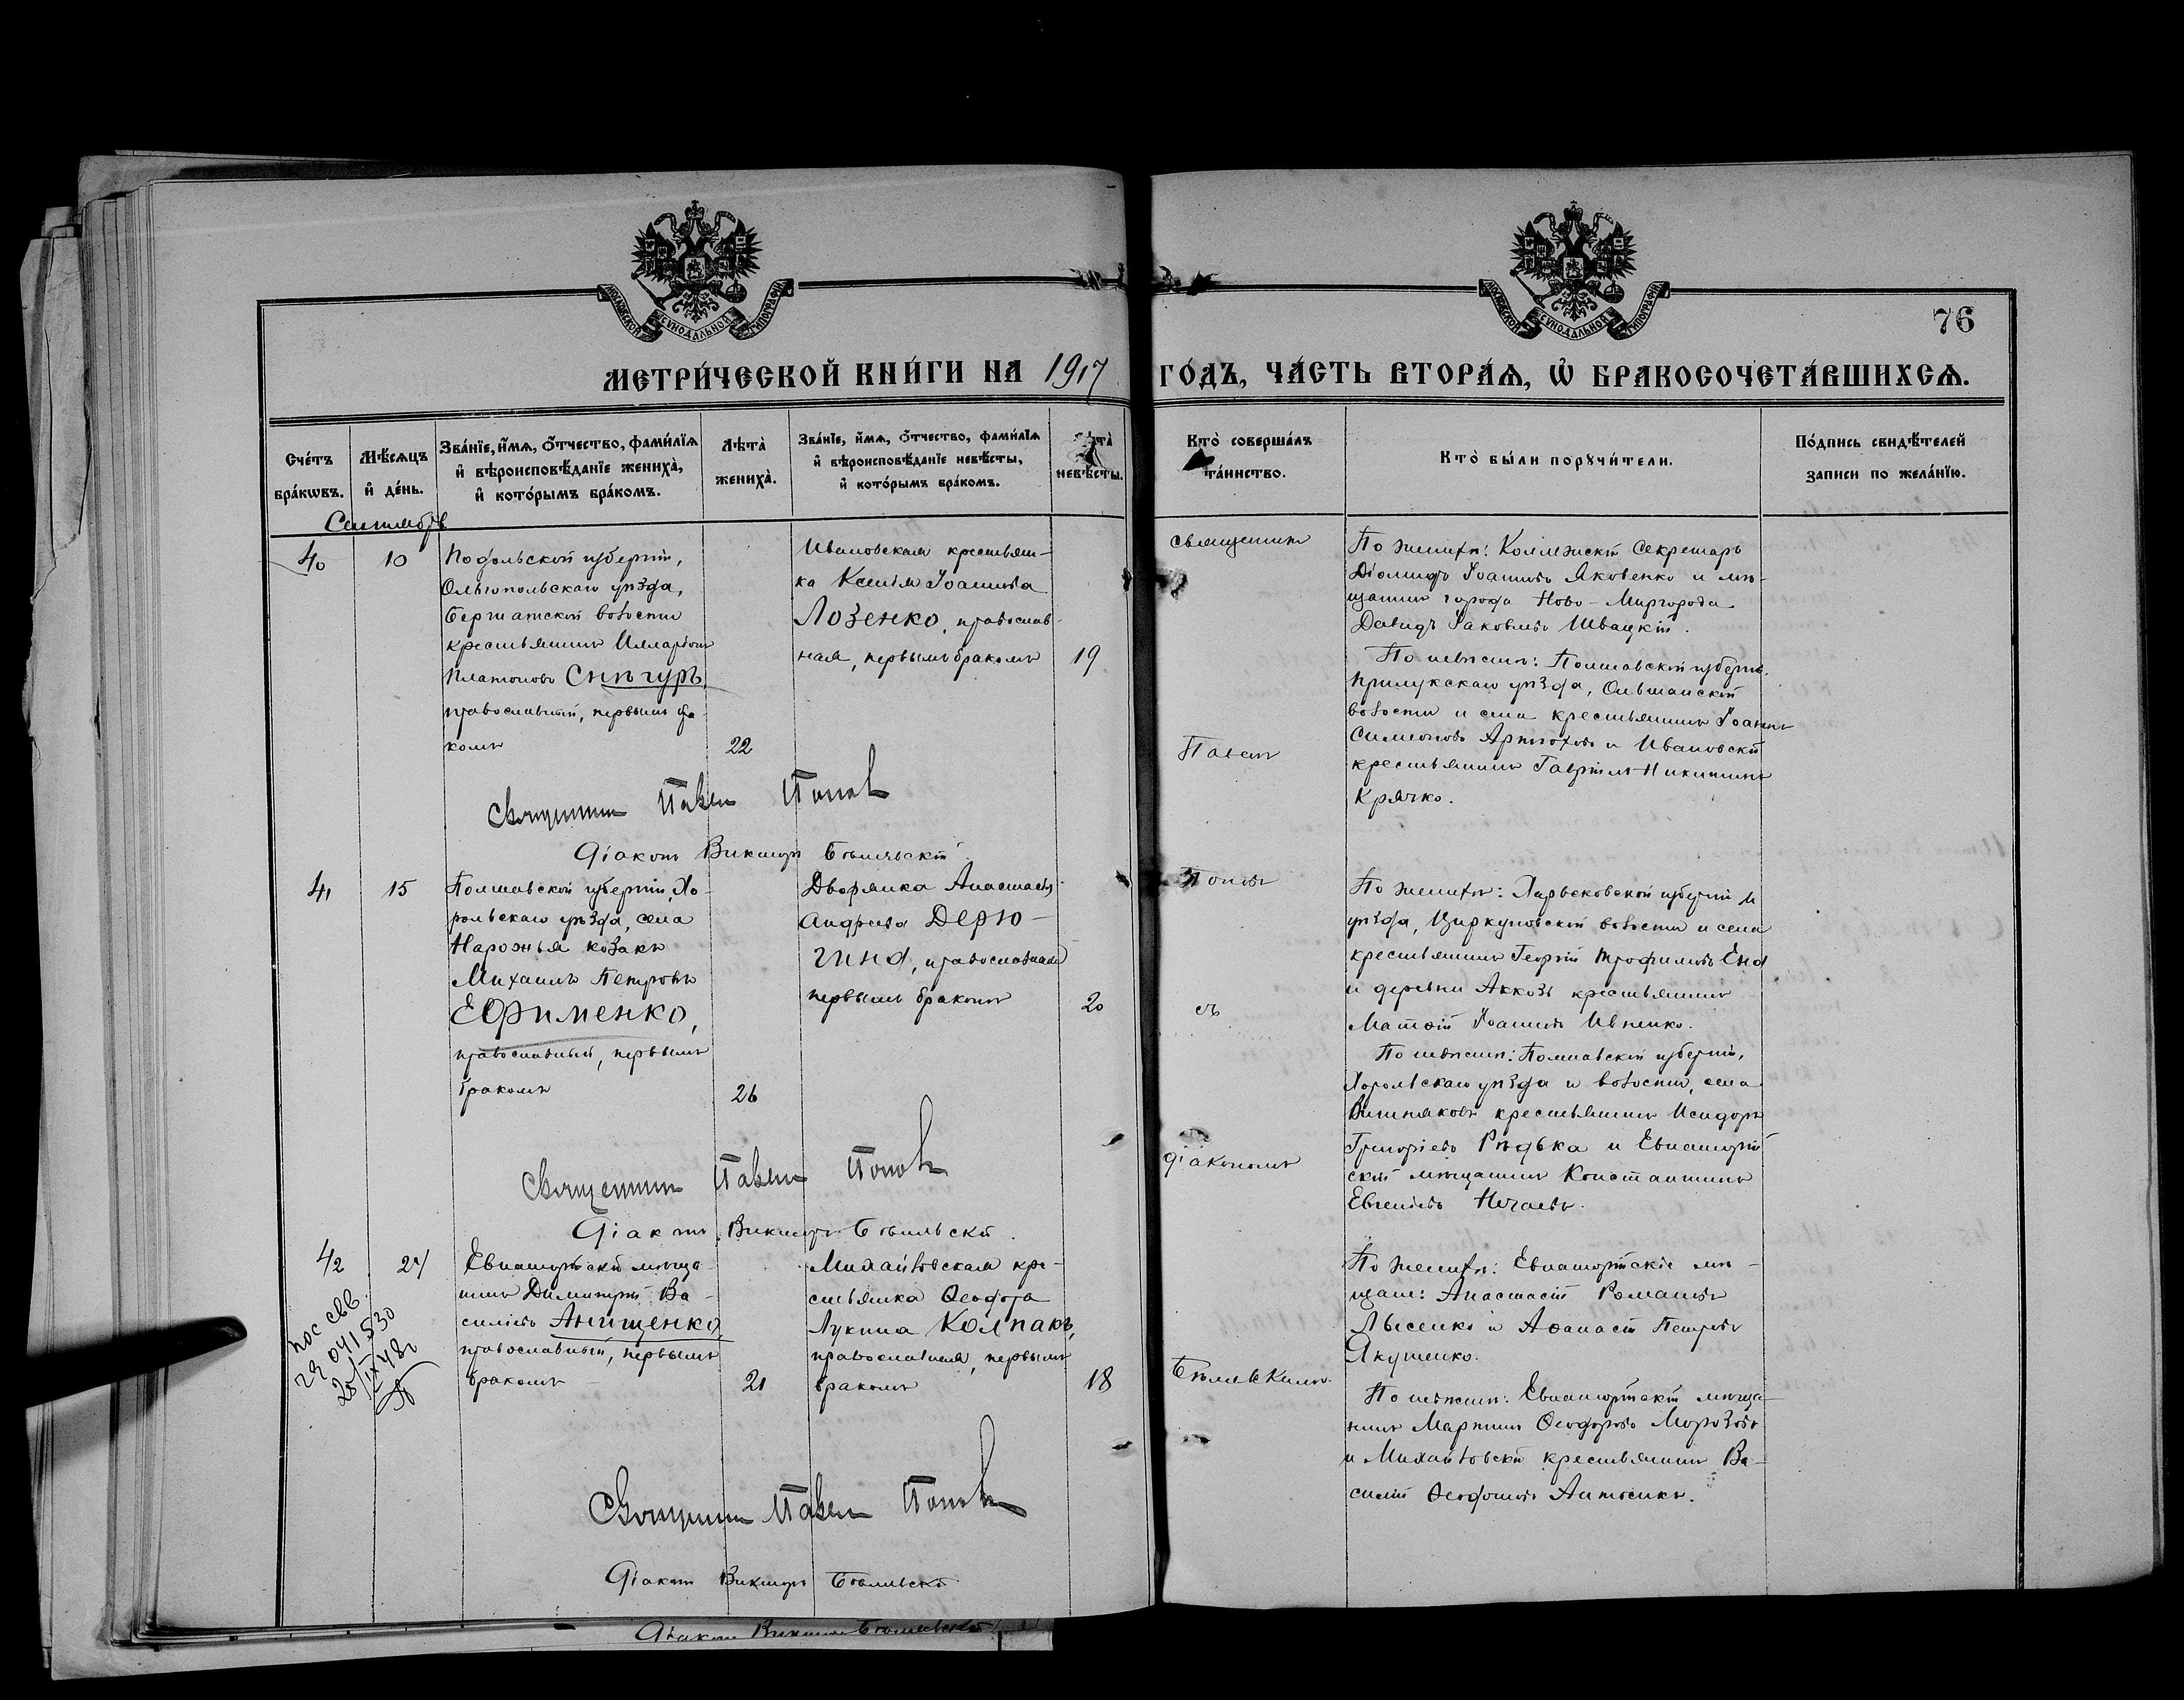 МОСКОВСКОЙ СѴНОДАЛЬНОЙ ТИПОГРАФІИ
МОСКОВСКОЙ СѴНОДАЛЬНОЙ ТИПОГРАФІИ
76
МЕТРИ́ЧЕСКОЙ КНИ́ГИ НА 1917 ГО́ДЪ, ЧА́СТЬ ВТОРА́Ѧ, Ѡ҆ БРАКОСОЧЕТА́ВШИХСѦ.
Сче́тъ бра́кѡвъ.
Мѣ́сѧцъ и҆ де́нь.
Зва́нїе, и҆́мѧ, ѻ҆́тчество, фами́лїѧ и҆ вѣроисповѣ́данїе жениха̀, и҆ кото́рымъ бра́комъ.
Лѣ́та̀ жениха̀.
Зва́нїе, и҆́мѧ, ѻ҆́тчество, фами́лїѧ и҆ вѣроисповѣ́данїе невѣ́сты, и҆ кото́рымъ бра́комъ.
невѣ́сты.
Кто̀ соверша́лъ та́инство.
Кто̀ бы́ли порꙋчи́тели.
По́дпись свидѣ́телей за́писи по жела́нїю.
Сентябрь
40
10
Подольской губерніи,
Ольгопольскаго уѣзда,
Бершатской волости
крестьянинъ Илларіонъ
Платоновъ Снѣгуръ,
православный, первымъ бра-
комъ
22
Ивановская крестьян-
ка Ксенія Іоаннова
Лозенко, православ-
ная, первымъ бракомъ
19
Священникъ
Павелъ
По женихѣ: Коллежскій Секретарь
Діомидъ Іоанновъ Яковенко и мѣ-
щанинъ города Ново-Миргорода
Давидъ Іаковлевъ Швацкій.
По невѣстѣ: Полтавской губерніи.
Прилукскаго уѣзда, Ольшанской
волости и села крестьянинъ Іоаннъ
Симеоновъ Артюховъ и Ивановскій
крестьянинъ Гавріилъ Никитинъ
Крячко.
Священникъ Павелъ Поповъ
Діаконъ Викторъ
41
15
Полтавской губерніи, Хо-
рольскаго уѣзда, села
Нарожья козакъ
Михаилъ Петровъ
Ефименко,
православный, первымъ
бракомъ
26
Дворянка Анастасія
Андреева Дерю-
гина, православная
первымъ бракомъ
20
Поповъ
съ
діакономъ
По женихѣ: Харьковской губерніи и
уѣзда, Циркуновской волости и села
крестьянинъ Георгій Трофимовъ Ена
и деревни Аккозъ крестьянинъ
Матфій Іоанновъ Ивненко.
По невѣстѣ: Полтавской губерніи,
Хорольскаго уѣзда и волости, села
Вишняковъ крестьянинъ Исидоръ
Григоріевъ Рѣдька и Евпаторій-
скій мѣщанинъ Константинъ
Евгеніевъ Нечаевъ.
Священникъ Павелъ Поповъ
Діаконъ Викторъ
42
24
Евпаторійскій мѣща-
нинъ Димитрій Ва-
силіевъ Анищенко,
православный, первымъ
бракомъ
21
Михайловская кре-
стьянка Ѳеодора
Лукина Колпакъ,
православная, первымъ
бракомъ
18
По женихѣ: Евпаторійскіе мѣ-
щане: Анастасій Романовъ
Лысенко и Аѳанасій Петровъ
Якушенко.
По невѣстѣ: Евпаторійскій мѣща-
нинъ Мартинъ Ѳеодоровъ Морозовъ
и Михайловскій крестьянинъ Ва-
силій Антоненко.
Священникъ Павелъ Поповъ
Діаконъ Викторъ
Діаконъ Викторъ